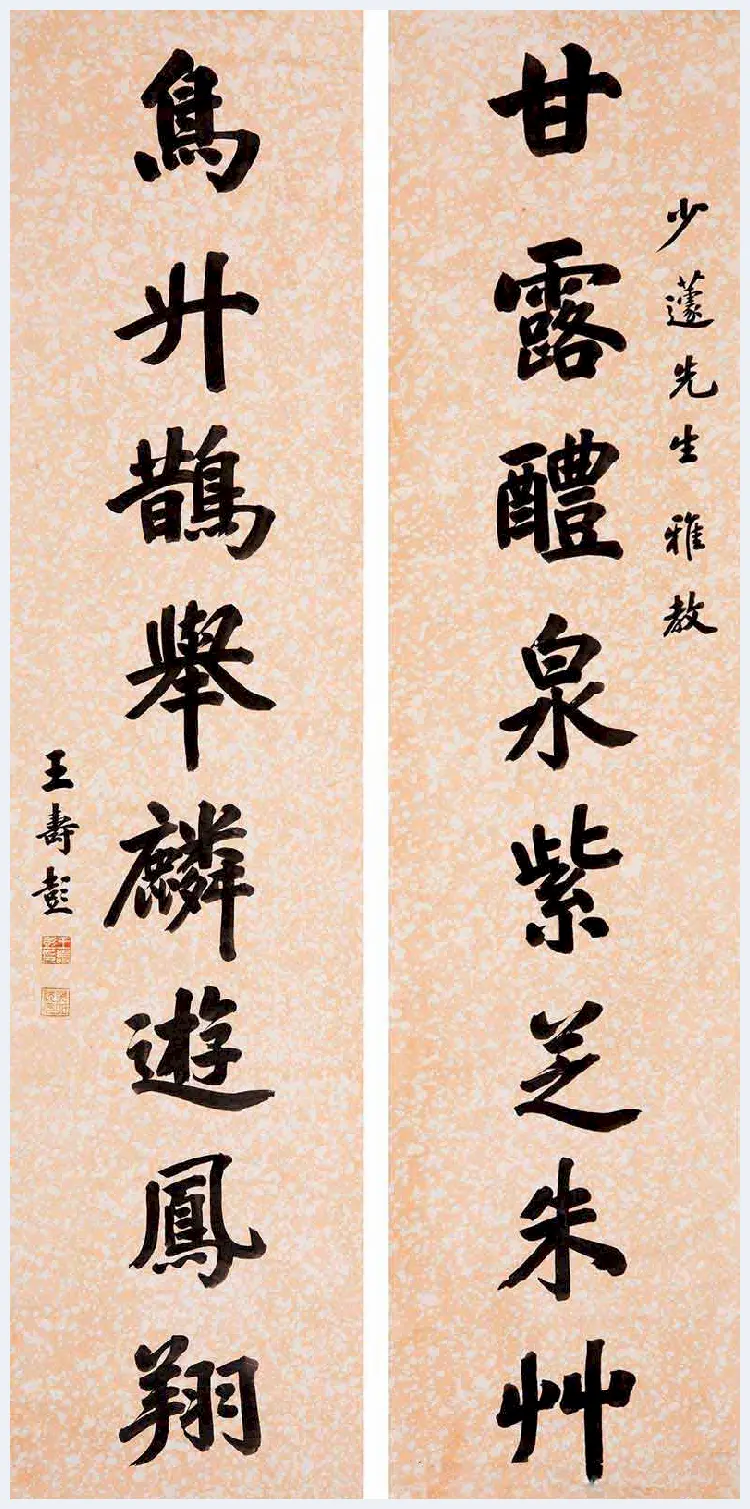 甘露醴泉紫芝朱艸
少蘧先生雅教
升鵲舉麟遊鳳翔
王壽彭